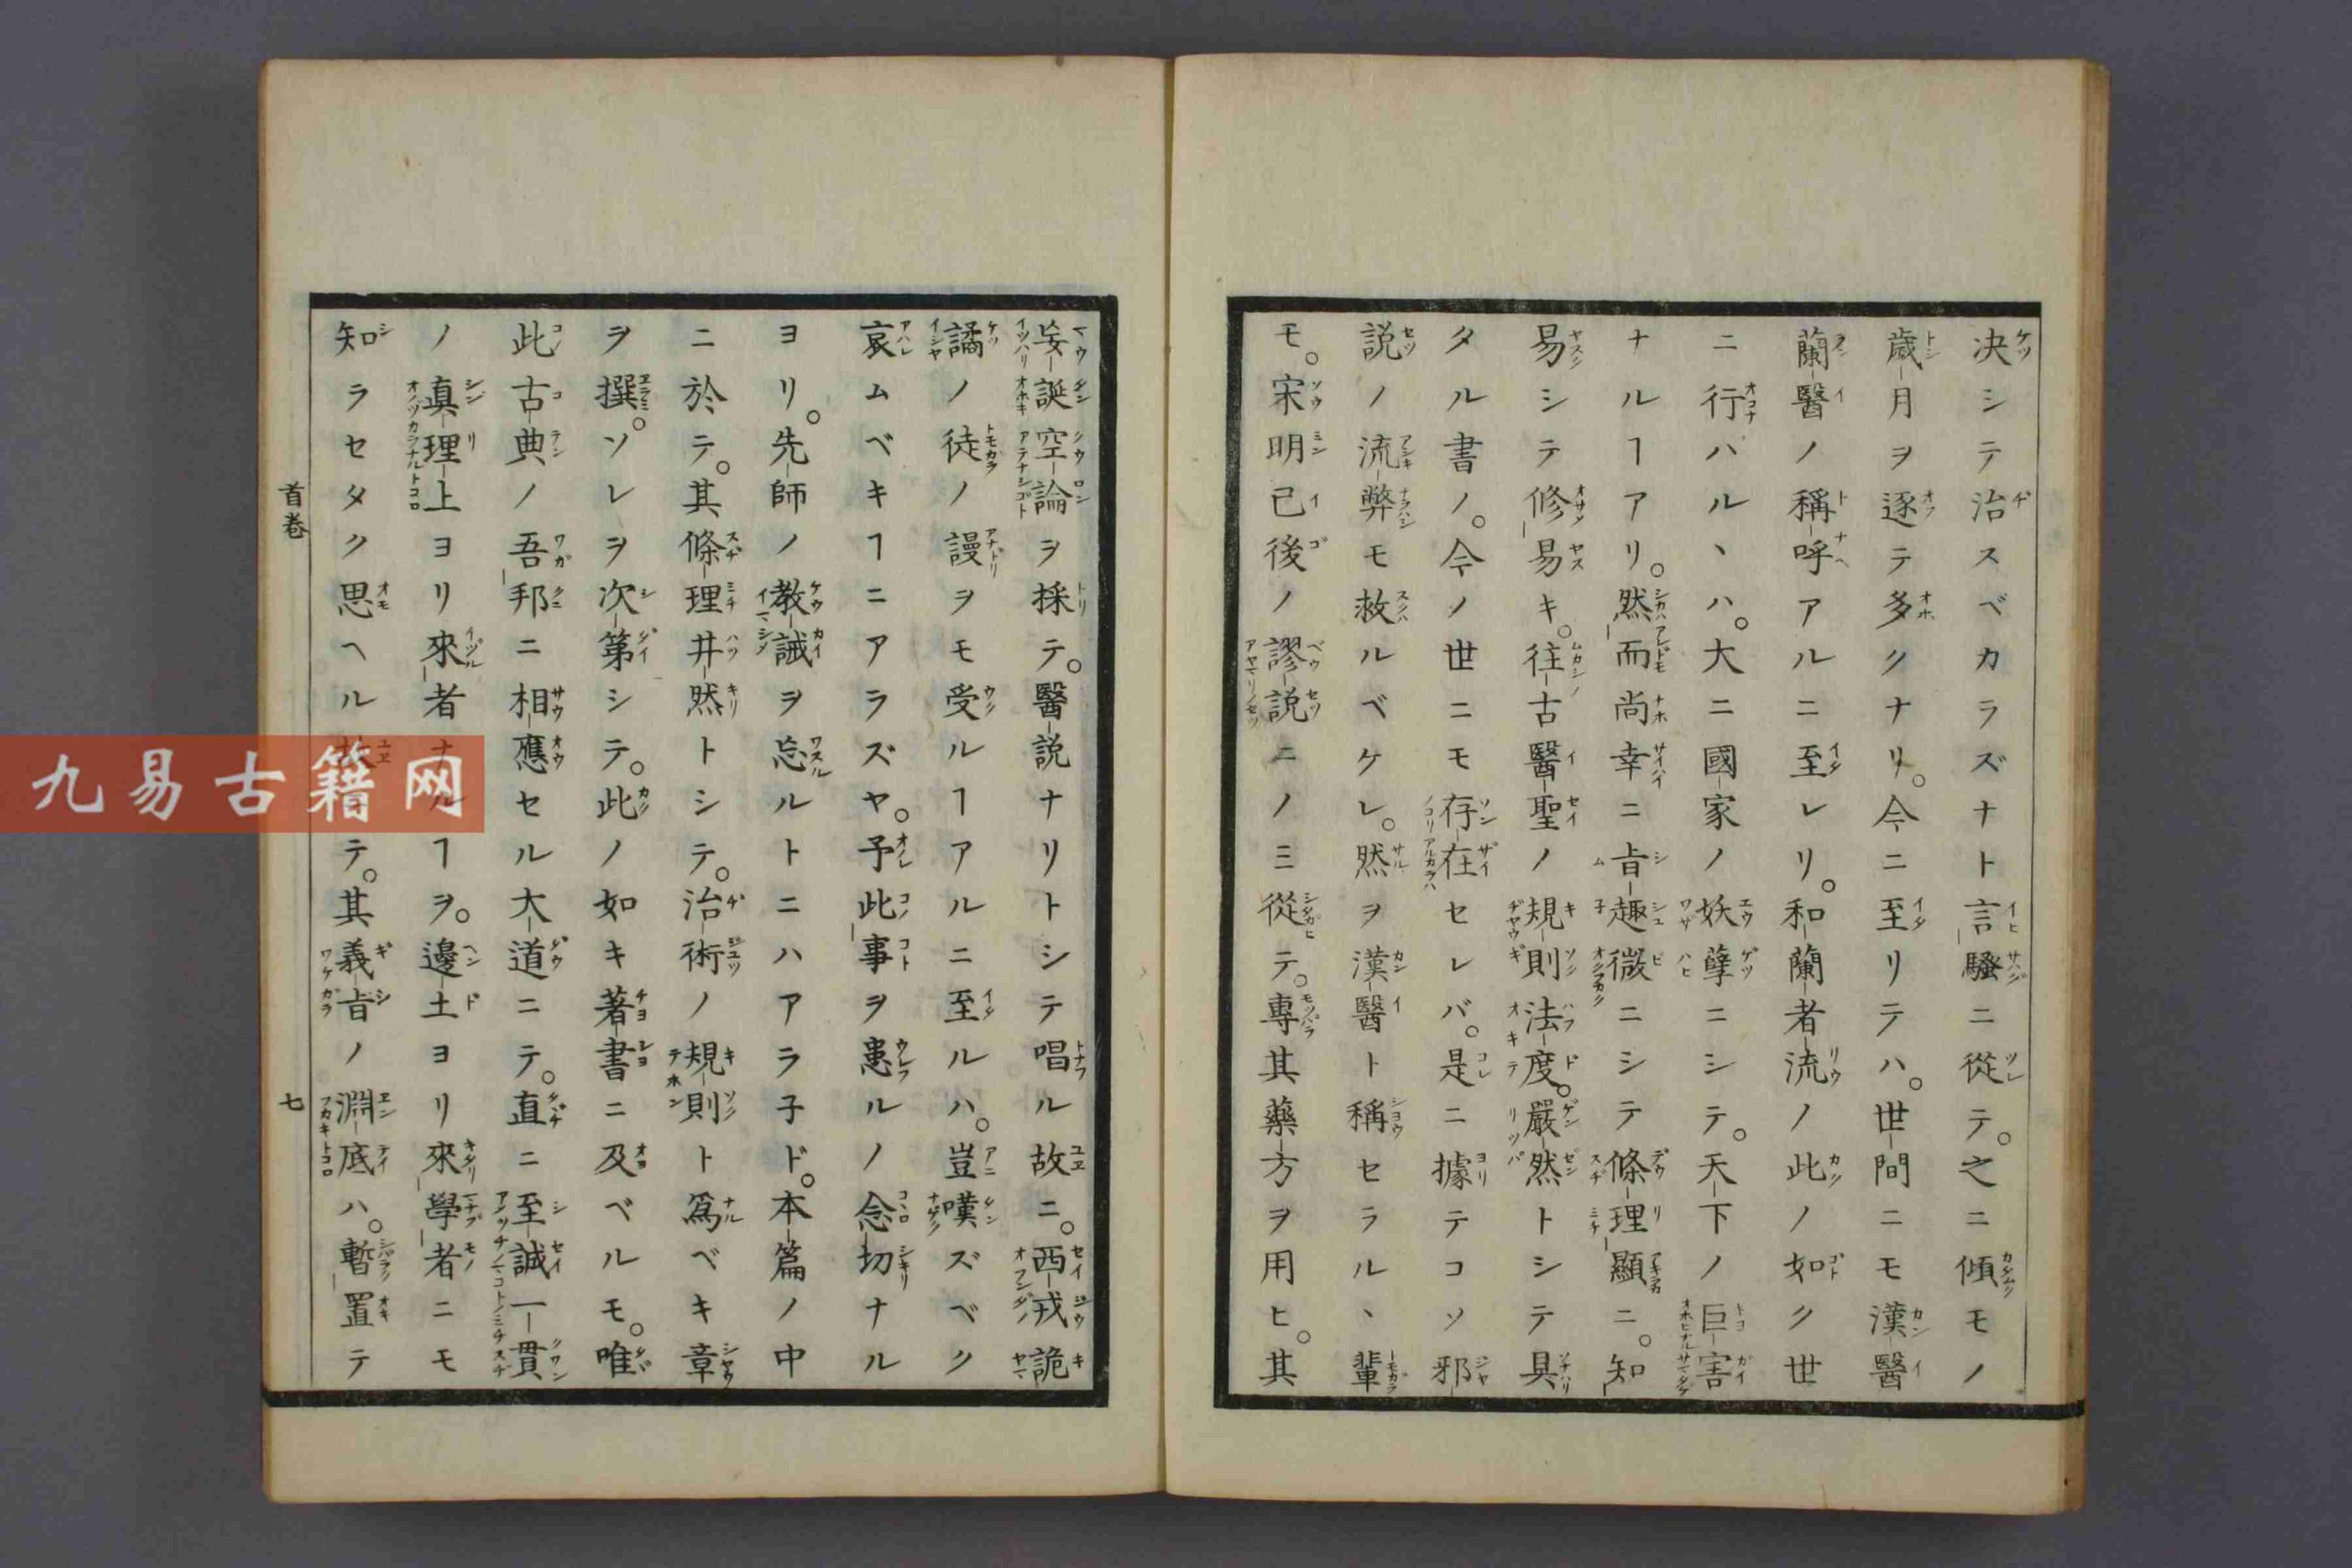 決シテ治スベカラズナト言騷ニ從テ。之ニ傾モノ
歲月ヲ逐テ多クナリ。今ニ至リテハ。世間ニモ漢醫
蘭醫ノ稱呼アルニ至レリ。和蘭者流ノ此ノ如ク世
ニ行ハルヽハ。大ニ國家ノ妖孽ニシテ。天下ノ巨害
ナルヿアリ。然而尚幸ニ旨趣微ニシテ條理顯ニ。知
易シテ修易キ。往古醫聖ノ規則法度。嚴然トシテ具
タル書ノ。今ノ世ニモ存在セレバ。是ニ據テコソ邪
説ノ流弊モ救ルベケレ。然ヲ漢醫ト稱セラルヽ輩
モ。宋明已後ノ謬説ニノミ從テ。專其藥方ヲ用ヒ。其
妄誕空論ヲ採テ。醫説ナリトシテ唱ル故ニ。西戎詭
譎ノ徒ノ謾ヲモ受ルヿアルニ至ルハ。豈嘆ズベク
哀ムベキヿニアラズヤ。予此事ヲ患ルノ念切ナル
ヨリ。先師ノ教誡ヲ忘ルトニハアラ子ド。本篇ノ中
ニ於テ。其條理井然トシテ。治術ノ規則ト爲ベキ章
ヲ撰。ソレヲ次第シテ。此ノ如キ著書ニ及ベルモ。唯
此古典ノ吾邦ニ相應セル大道ニテ。直ニ至誠一貫
ノ眞理上ヨリ來者ナルヿヲ。邊土ヨリ來學者ニモ
知ラセタク思ヘル故テ。其義旨ノ淵底ハ。暫置テ
首卷
七
九易古籍网